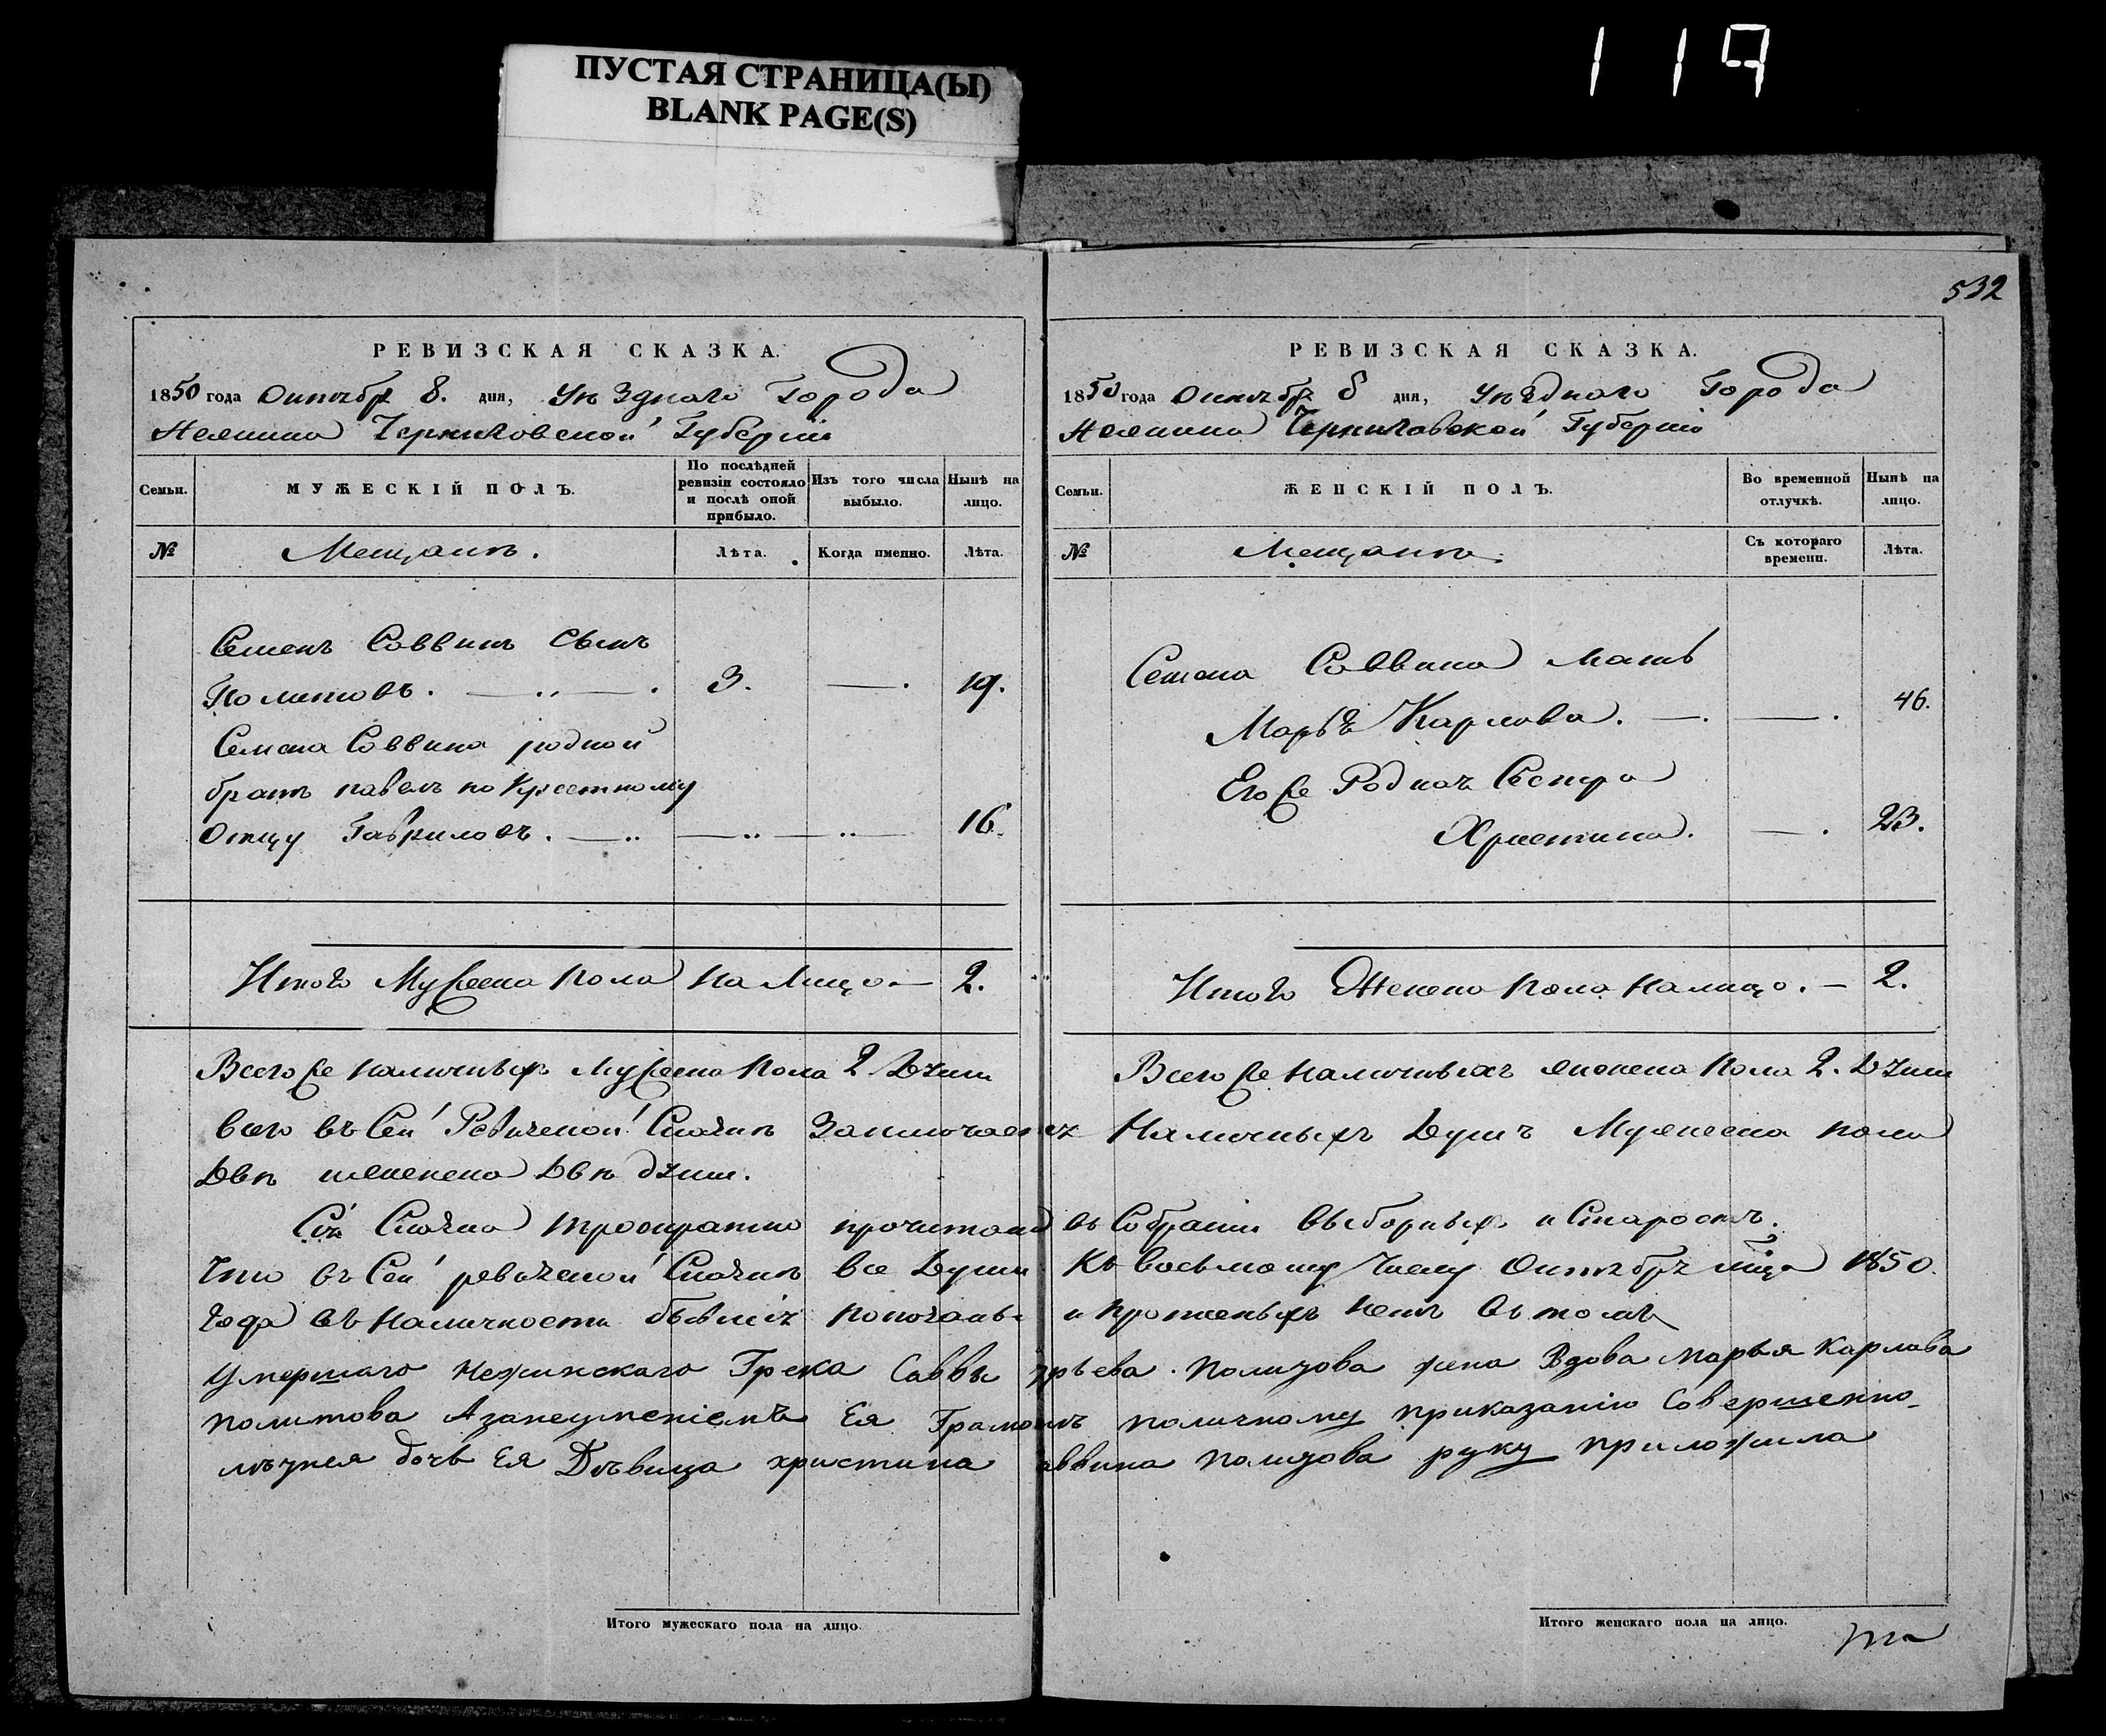 119
ПУСТАЯ СТРАНИЦА(Ы)
BLANK PAGE(S)
РЕВИЗСКАЯ СКАЗКА.
1850 года Октября 8. дня, Уезднаго Города
Нежина Черниговской Губерніи
Семьи.
МУЖЕСКІЙ ПОЛЪ.
По послѣдней ревизіи состояло и послѣ оной прибыло.
Изъ того числа выбыло.
Нынѣ на лицо.
№
Мещанъ.
Лѣта.
Когда именно.
Лѣта.
Семенъ Саввинъ сынъ
3. 19.
Семена Саввина родной
братъ павелъ по Крестному
Отцу Гавриловъ. 16.
Итого Мужеска пола на Лицо — 2.
Всего же наличныхъ Мужеска пола 2 Души
532
РЕВИЗСКАЯ СКАЗКА.
1850 года Октября 8 дня, Уезднаго Города
Нежина Черниговской Губерніи
Семьи.
ЖЕНСКІЙ ПОЛЪ.
Во временной отлучкѣ.
Нынѣ на лицо.
№
Мещанъ.
Съ котораго времени.
Лѣта.
Семена Саввина мать
Марья Карлова. 46.
Его же Родная Сестра
Христина. 23.
Итого Женска пола налицо. — 2.
Всего же наличныхъ женска пола 2. Души
всего въ Сей Ревизской Сказкѣ Заключается Наличныхъ Душъ Мужеска пола
Двѣ и женска Двѣ души.
Сія Сказка троекратно прочитана въ Собраніи выборныхъ и Старостъ.
Что въ Сей ревизской Сказкѣ все Души Къ восьмому Числу Октября мца 1850.
года въ наличности бывшія показаны и прописныхъ нетъ въ томъ
Умершаго нежинскаго Грека Саввы жена Вдова марья Карлова
Азанеуменіемъ Ея Грамотѣ поличному приказанію Совершенно-
лѣтнея дочь Ея Дѣвица христина руку приложила
Итого мужескаго пола на лицо.
Итого женскаго пола на лицо.